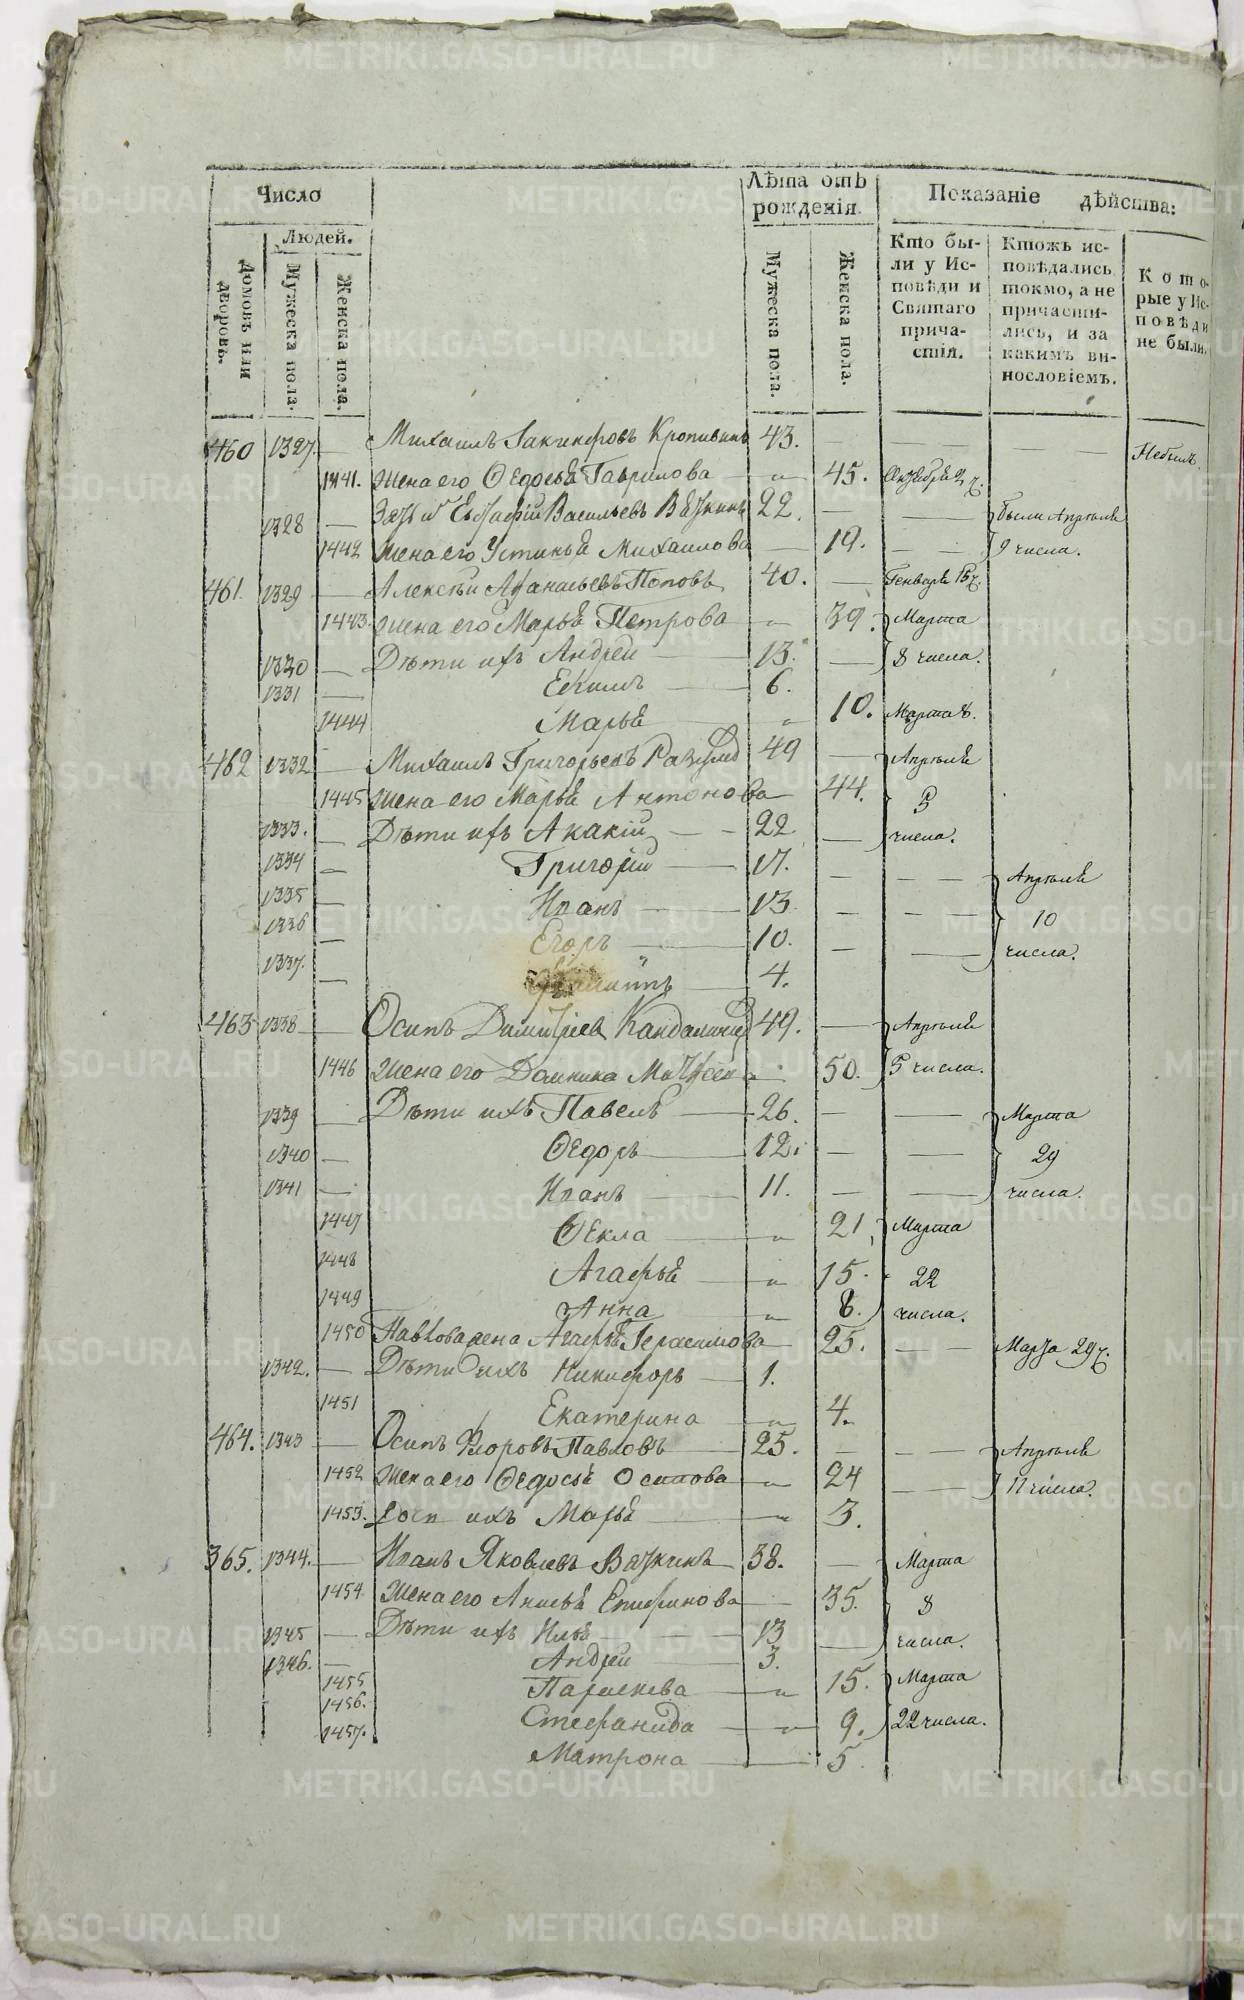 Число
Лѣта отъ рожденія.
Показаніе дѣйства:
домовъ или дворовъ.
Людей.
Мужеска пола.
Женска пола.
Мужеска пола.
Женска пола.
Кто были у Исповѣди и Святаго причастія.
Ктожъ исповѣдались токмо, а не причастились, и за какимъ винословіемъ.
Которые у Исповѣди не были.
460 1327. Михаилъ Іакинфовъ Кропивинъ 43. Небылъ
1441. жена его Ѳедосья Гаврилова 45. Октября 2 ч.
1328 Зять Васильевъ Вяткинъ 22. были Апрѣля
1442 жена его Устинья Михаилова 19. 9 числа.
461. 1329 Алексѣй Афанасьевъ Поповъ 40. Генваря 15 ч.
1443. жена его Марья Петрова 39. Марта
1330 Дѣти ихъ Андрей 13. 8 числа.
1331 Екимъ 6.
1444 Марья 10. Марта 8.
462 1332 Михаилъ Григорьевъ 49 Апрѣля
1445 жена его Марья Антонова 44. 5
1333. Дѣти ихъ Акакій 22 числа.
1334 Григорій 17. Апрѣля
1335 Иванъ 13 10
1336 Егоръ 10. числа.
1337. 4.
463 1338 Осипъ Димитріев 49. Апрѣля
1446 жена его Домника 50. 5 числа.
1339 Дѣти ихъ Павелъ 26. Марта
1340 Ѳедоръ 12. 29
1341 Иванъ 11. числа.
1447 Ѳекла 21 Марта
1448 Агафья 15. 22
1449 Анна 8. числа.
1450 Павлова жена Агафья Герасимова 25. Марта 29 ч.
1342. Дѣти ихъ Никифоръ 1.
1451 Екатерина 4.
464. 1343 Осипъ Флоровъ Павловъ 25. Апрѣля
1452 жена его Ѳедосья Осипова 24 12 числа.
1453. дочь ихъ Марья 3.
365. 1344. Иванъ Яковлевъ Вяткинъ 38. Марта
1454 жена его Анисья Епифанова 35. 8
1345 Дѣти ихъ Илья 13 числа.
1346. Андрей 3.
1455 Параскева 15. Марта
1456. Стефанида 9. 22 числа.
1457. Матрона 5.
METRIKI.GASO-URAL.RU